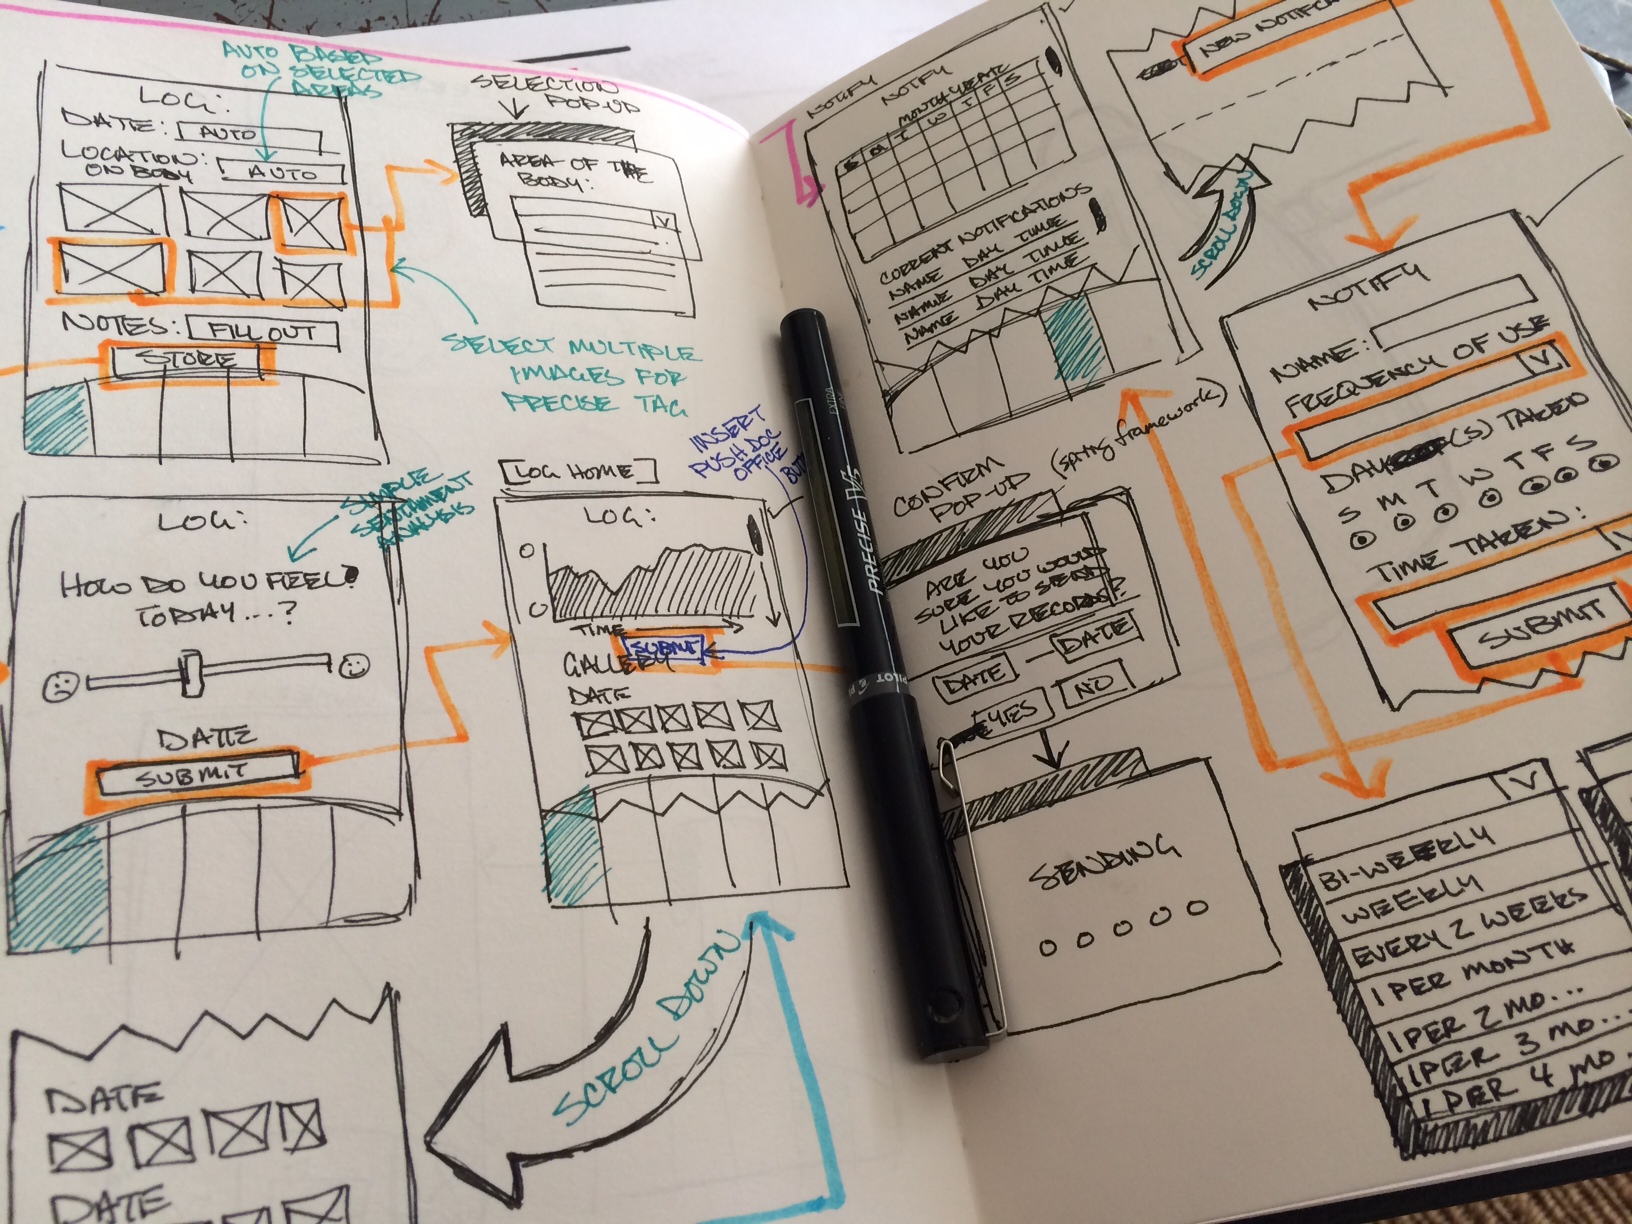 AUTO BASED
ON SELECTED
AREAS
LOG:
DATE: AUTO
LOCATION: AUTO
ON BODY
NOTES: FILL OUT
STORE
SELECTION
POP-UP
AREA OF THE
BODY:
V
SELECT MULTIPLE
IMAGES FOR
PRECISE TAG
SIMPLE
SENTIMENT
ANALYSIS
LOG:
HOW DO YOU FEEL?
TODAY....?
DATE
SUBMIT
LOG HOME
INSERT
PUSH DOC
OFFICE
LOG:
TIME
SUBMIT
GALLERY
DATE
SCROLL DOWN
DATE
DATE
NOTIFY
NOTIFY
MONTH/YEAR
S M T W T F S
CURRENT NOTIFICATIONS
NAME DAY TIME
NAME DAY TIME
NAME DAY TIME
NEW NOTIFICA
SCROLL DOWN
NOTIFY
NAME:
FREQUENCY OF USE
V
DAY(S) TAKEN
S M T W T F S
TIME TAKEN:
SUBMIT
CONFIRM
POP-UP
(spring framework)
ARE YOU
SURE YOU WOULD
LIKE TO SEND
YOUR RECORDS?
DATE - DATE
YES NO
SENDING
V
BI-WEEKLY
WEEKLY
EVERY 2 WEEKS
1 PER MONTH
1 PER 2 MO...
1 PER 3 MO...
1 PER 4 MO
PRECISE V5
EXTRA FINE
PILOT